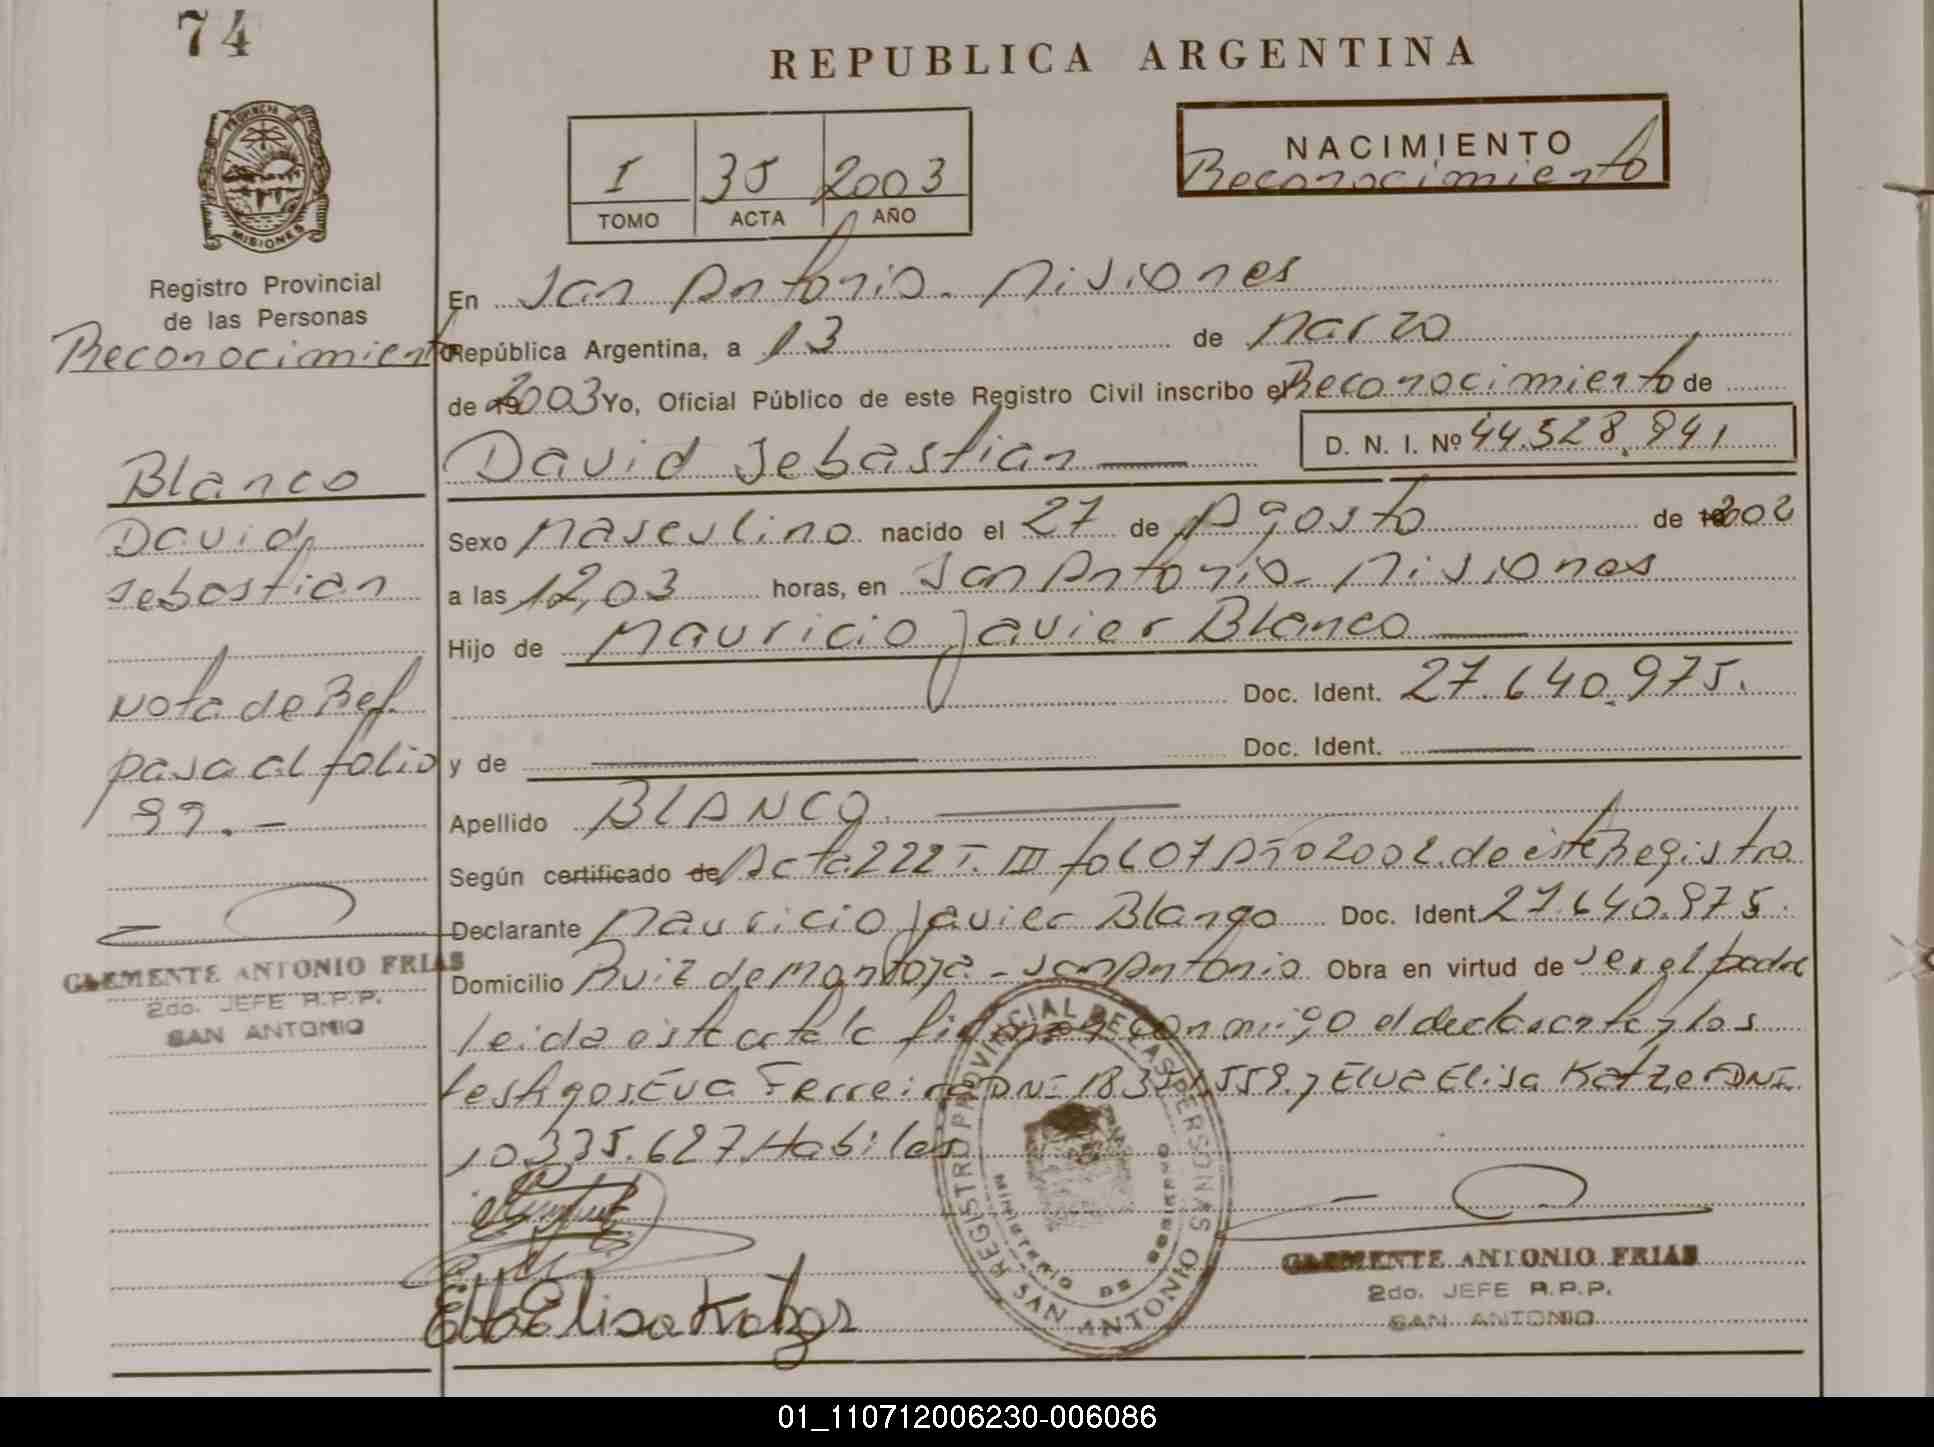 74
REPUBLICA ARGENTINA
PROVINCIA DE
MISIONES
Registro Provincial
de las Personas
Reconocimiento
Blanco
David
Sebastian
Nota de Ref.
pasa al folio
99.-
CLEMENTE ANTONIO FRIAS
2do. JEFE R.P.P.
SAN ANTONIO
I 35 2003
TOMO ACTA AÑO
NACIMIENTO
Reconocimiento
En San Antonio - Misiones
República Argentina, a 13 de Marzo
de 2003 Yo, Oficial Público de este Registro Civil inscribo el Reconocimiento de
David Sebastian D. N. I. Nº 44.528.941
Sexo Masculino nacido el 27 de Agosto de 2002
a las 12,03 horas, en San Antonio - Misiones
Hijo de Mauricio Javier Blanco
Doc. Ident. 27.640.975.
y de Doc. Ident.
Apellido BLANCO.
Según certificado de Acta 222 T. III fol 07 Año 2002. de este Registro
Declarante Mauricio Javier Blanco Doc. Ident. 27.640.975.
Domicilio Ruiz de Montoya - San Antonio Obra en virtud de ser el padre
leida esta acta la firman conmigo el declarante y los
testigos: Eva Ferreira DNI y Elva Elisa Katzer DNI.
10.335.627 Habiles
Elba Elisa Katzer
REGISTRO PROVINCIAL DE LAS PERSONAS
MINISTERIO DE GOBIERNO
SAN ANTONIO
CLEMENTE ANTONIO FRIAS
2do. JEFE R.P.P.
SAN ANTONIO
01_110712006230-006086